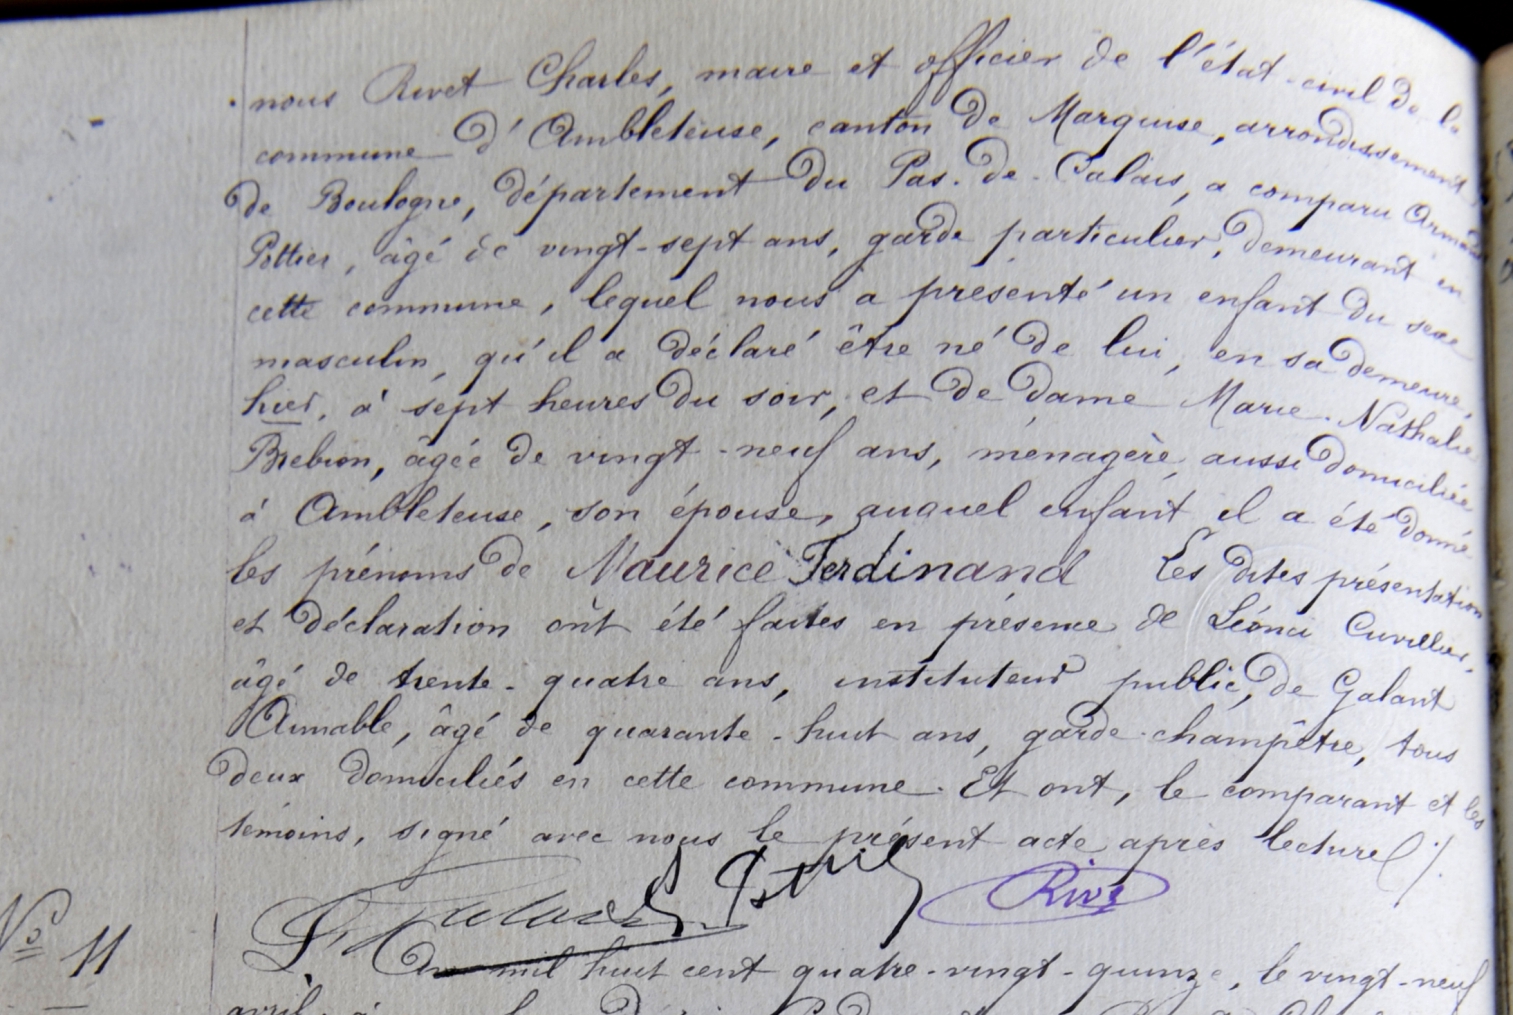 nous Rivet Charles, maire et officier de l'état-civil de la
commune d'Ambleteuse, canton de Marquise, arrondissement
de Boulogne, département du Pas-de-Calais, a comparu Armand
Pottier, âgé de vingt-sept ans, garde particulier, demeurant en
cette commune, lequel nous a présenté un enfant du sexe
masculin, qu'il a déclaré être né de lui, en sa demeure,
hier, à sept heures du soir, et de dame Marie-Nathalie
Brebion, âgée de vingt-neuf ans, ménagère, aussi domiciliée
à Ambleteuse, son épouse, auquel enfant il a été donné
les prénoms de Maurice Ferdinand Les dites présentation
et déclaration ont été faites en présence de Léonce Cuvillier,
âgé de trente-quatre ans, instituteur public, de Galant
Aimable, âgé de quarante-huit ans, garde-champêtre, tous
deux domiciliés en cette commune. Et ont, le comparant et les
témoins, signé avec nous le présent acte après lecture ./.
Nº 11
L'An mil huit cent quatre-vingt-quinze, le vingt-neuf
avril, à